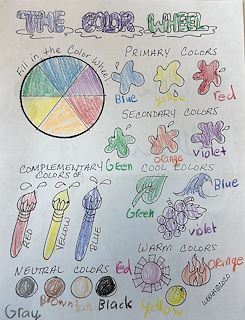 THE COLOR WHEEL
Fill in the Color Wheel
PRIMARY COLORS
Blue
yellow
Red
SECONDARY COLORS
Green
orange
violet
COMPLEMENTARY COLORS OF:
RED
YELLOW
BLUE
COOL COLORS
Green
Blue
violet
WARM COLORS
Red
Orange
Yellow
NEUTRAL COLORS
Gray
Brown
tan
Black